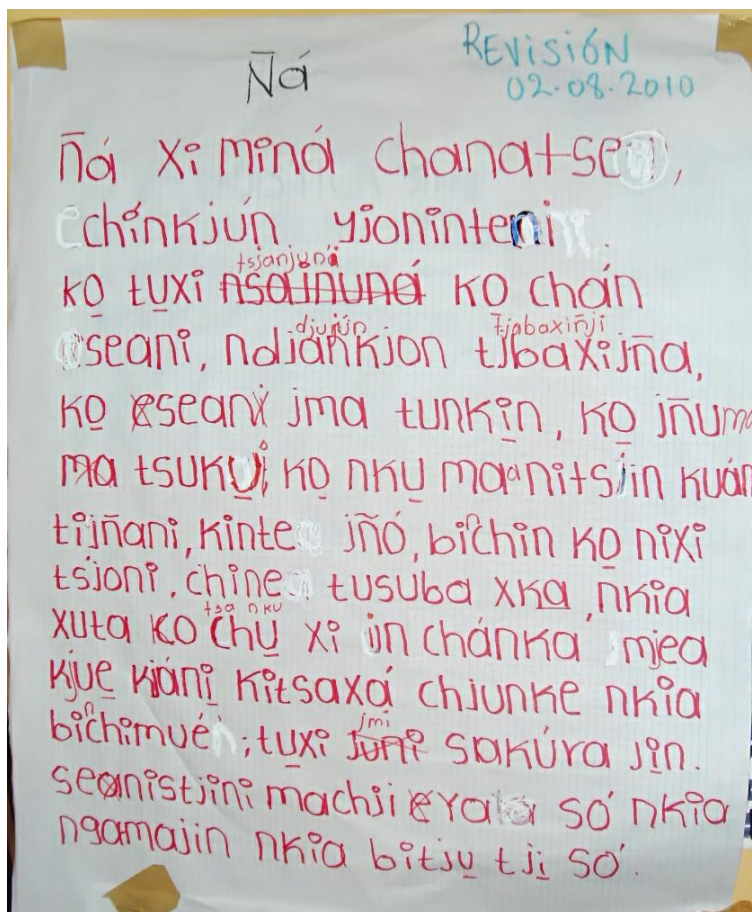 REVISIÓN
Ñá 02.08.2010
Ñá xi miná chanatse,
chínkjún yjoninteni
tsjanjuná
ko̱ tu̱xi nsajnuná ko chán
djunjún tjobaxiñji
seani, ndjánkjon tjbaxijña,
ko̱ seani jma tunki̱n, ko̱ jñuma
ma tsuku̱i, ko̱ nku̱ maanitsjin kuán
tijñani, kinte jñó, binchin ko̱ nixi
tsjoni, chine tusuba xka̱, nkia
tsa nku
xuta ko chu̱ xi jn chánka mjea
kjue̱ kjáni̱ kitsaxá chjunke nkia
binchimué; tu̱xi jmi juni sakúra ji̱n.
seanistjini machji yala só nkia
ngamajin nkia bitju̱ tji̱ só.